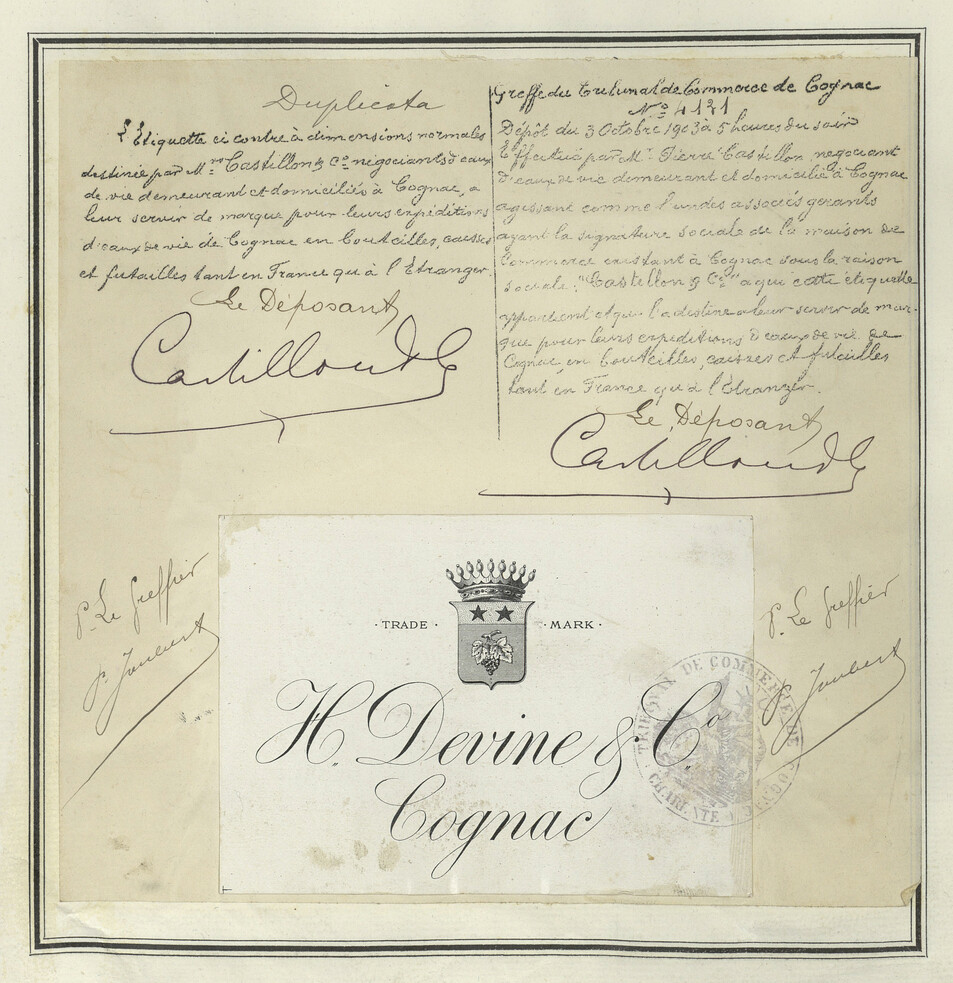 Duplicata
L'Etiquette ci contre à dimensions normales
destinée par M.rs Castillon & Co. négociants d'eaux
de vie demeurant et domiciliés à Cognac, à
leur servir de marque pour leurs expéditions
d'eaux de vie de Cognac en bouteilles, caisses
et futailles tant en France qu'à l'Etranger.
Le Déposant
Castillon & Co
Greffe du Tribunal de Commerce de Cognac
No. 4121
Dépôt du 3 Octobre 1903 à 5 heures du soir
Effectué par Mr. Pierre Castillon, négociant
d'eaux de vie demeurant et domicilié à Cognac
agissant comme l'un des associés gérants
ayant la signature sociale de la maison de
Commerce existant à Cognac sous la raison
sociale: "Castillon & Co." à qui cette étiquette
appartient et qui l'a destine à leur servir de mar-
que pour leurs expéditions d'eaux de vie de
Cognac, en bouteilles, caisses et futailles
tant en France qu'à l'Etranger.
Le Déposant
Castillon & Co
P. Le Greffier
P. Joubert
· TRADE · · MARK ·
H. Devine & Co.
Cognac
P. Le Greffier
P. Joubert
TRIBUNAL DE COMMERCE DE
CHARENTE